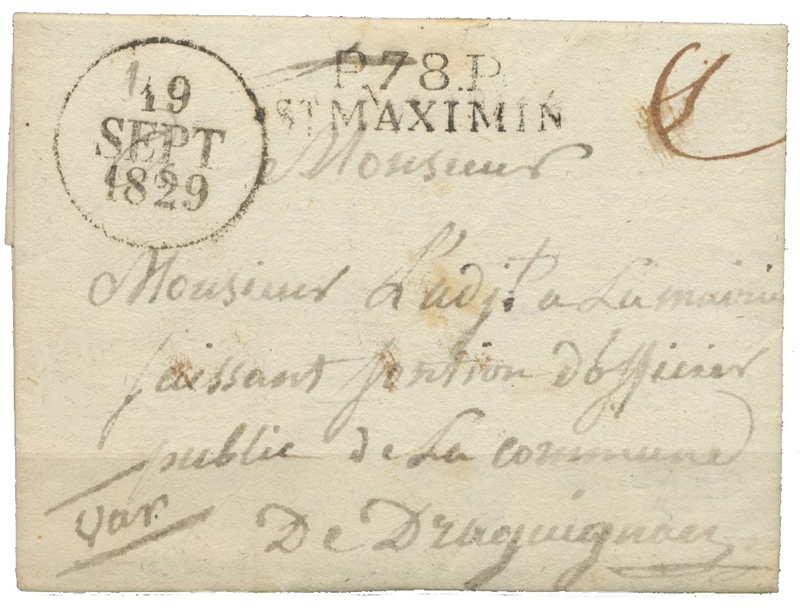 19
SEPT
1829
P.78.P.
ST MAXIMIN
Monsieur
Monsieur L'adjt a La mairie
faissant fontion d'officier
public de La commune
Var
De Draguignan